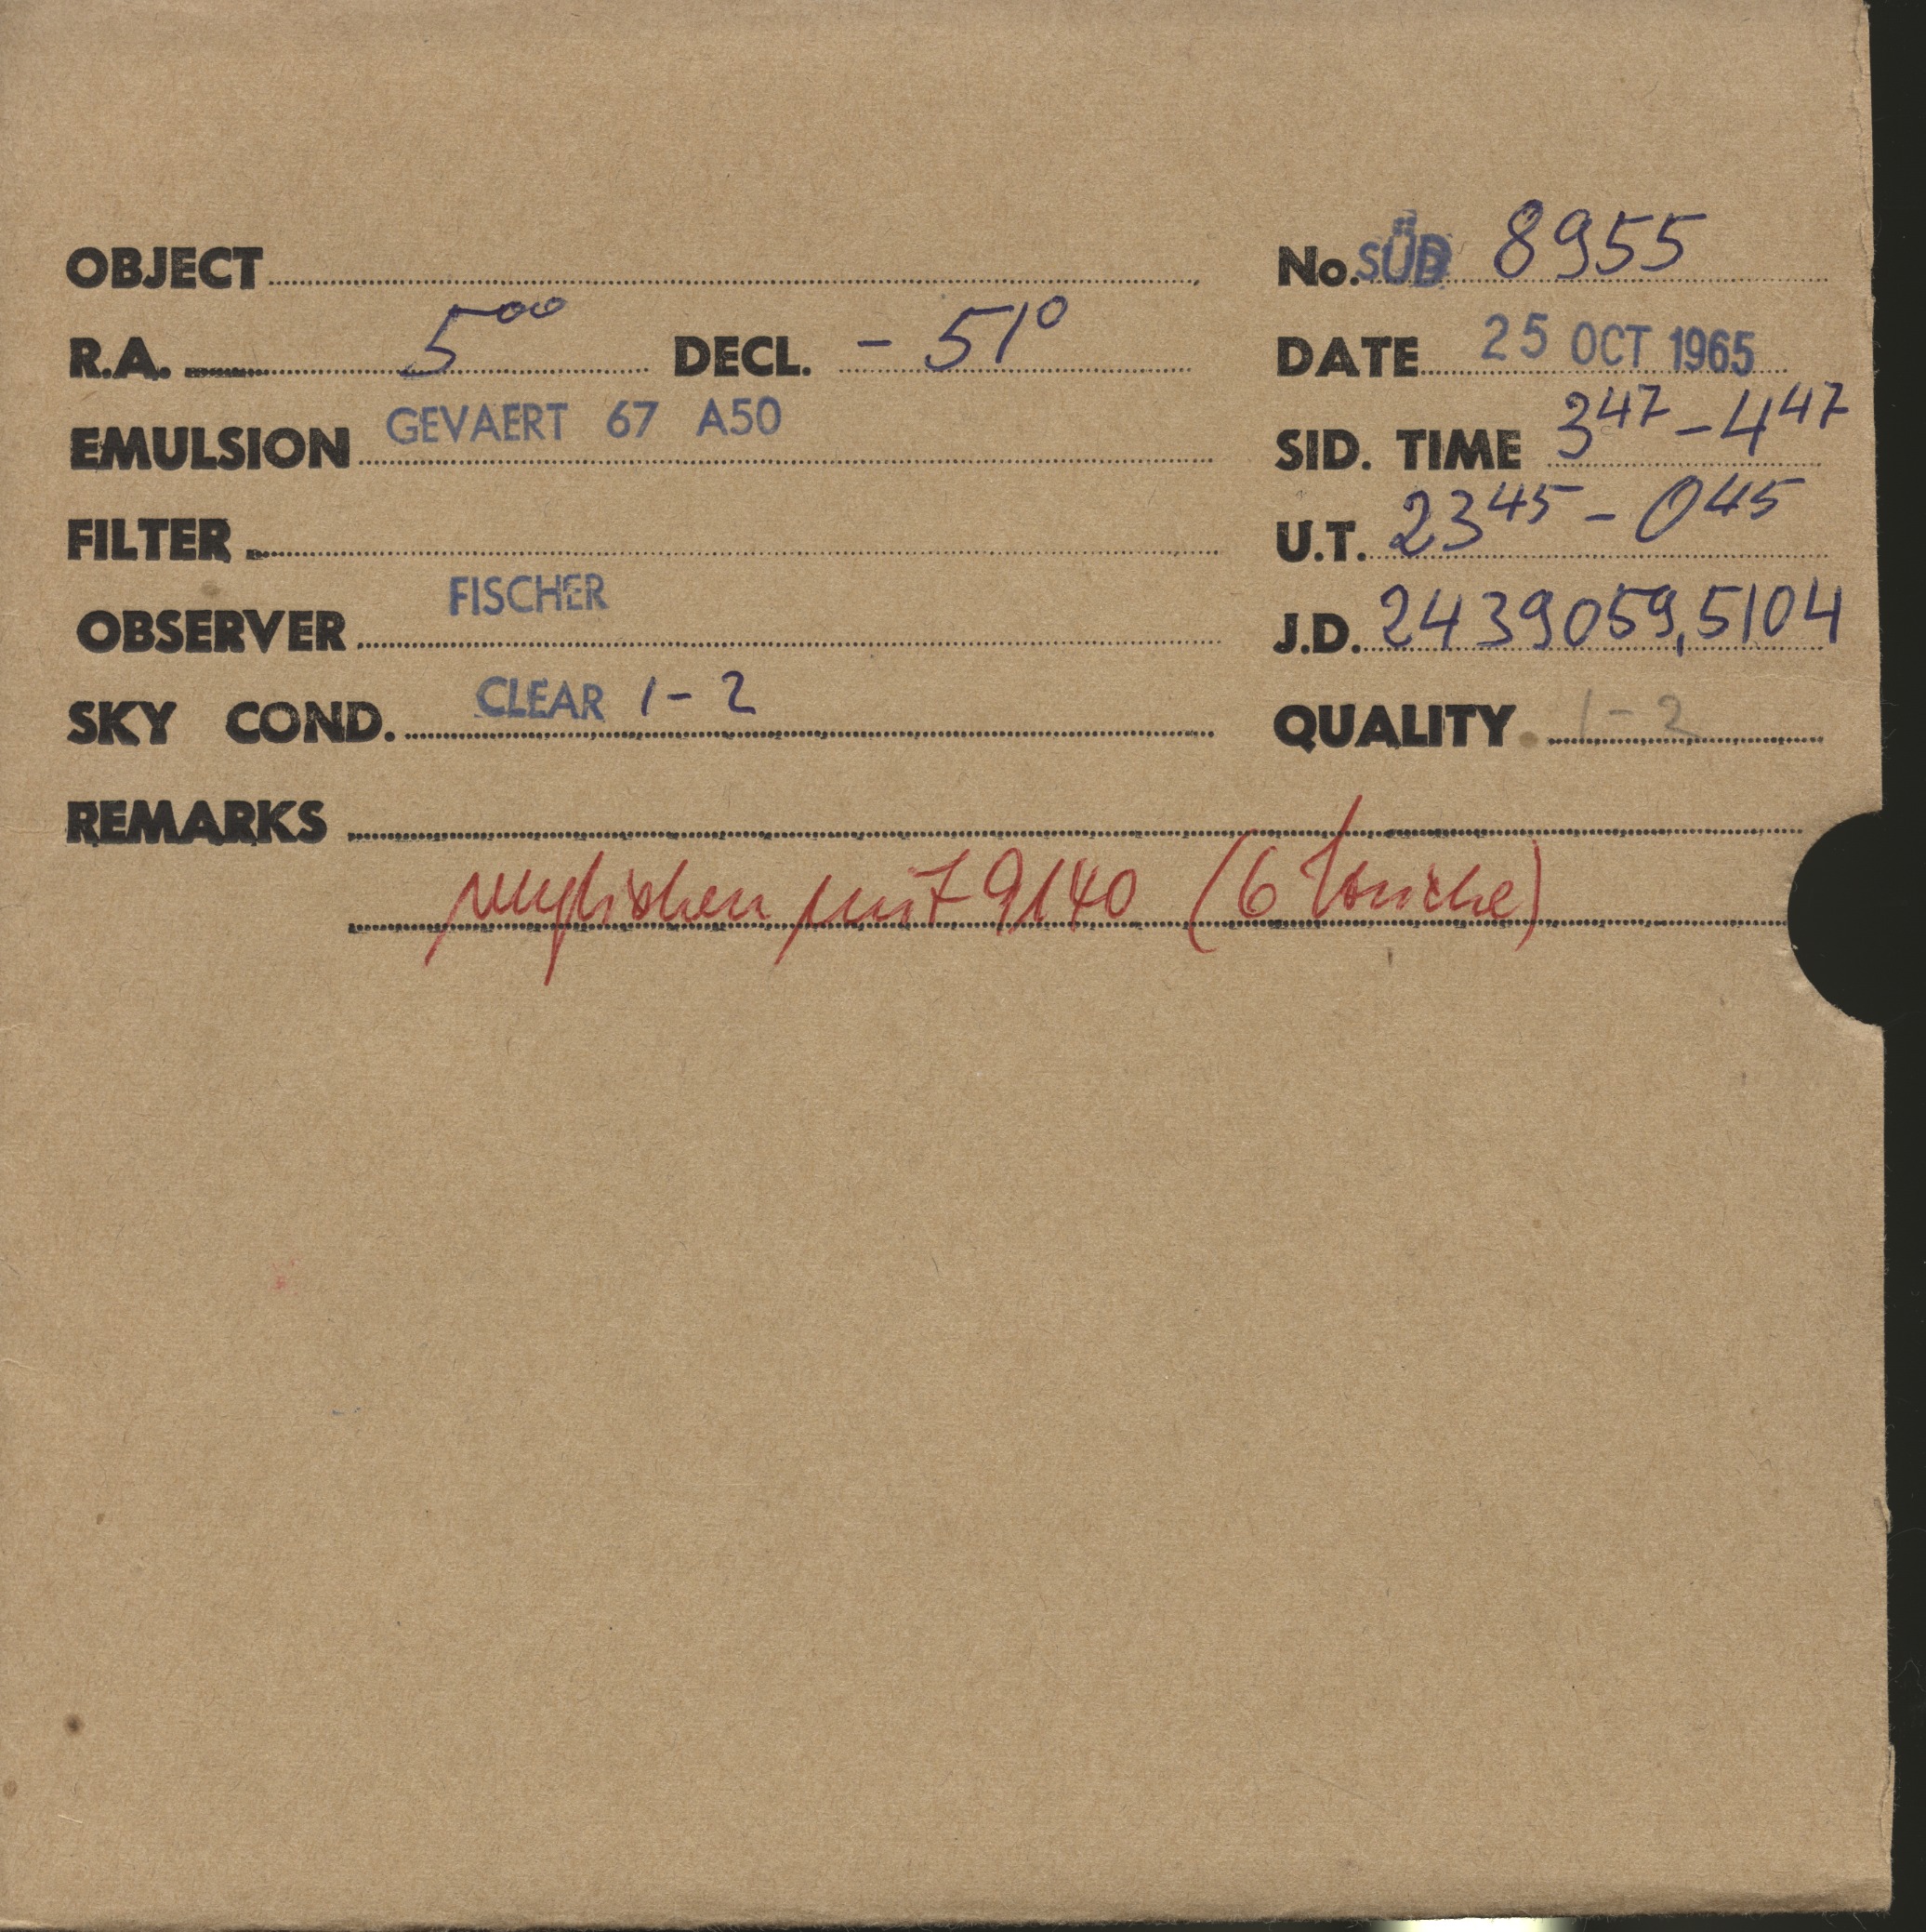 OBJECT
No. SÜD 8955
R.A. 5⁰⁰ DECL. - 51°
DATE 25 OCT 1965
EMULSION GEVAERT 67 A50
SID. TIME 3⁴⁷ - 4⁴⁷
FILTER
U.T. 23⁴⁵ - 0⁴⁵
OBSERVER FISCHER
J.D. 2439059,5104
SKY COND. CLEAR 1 - 2
QUALITY 1 - 2
REMARKS
verglichen mit 9140 (6